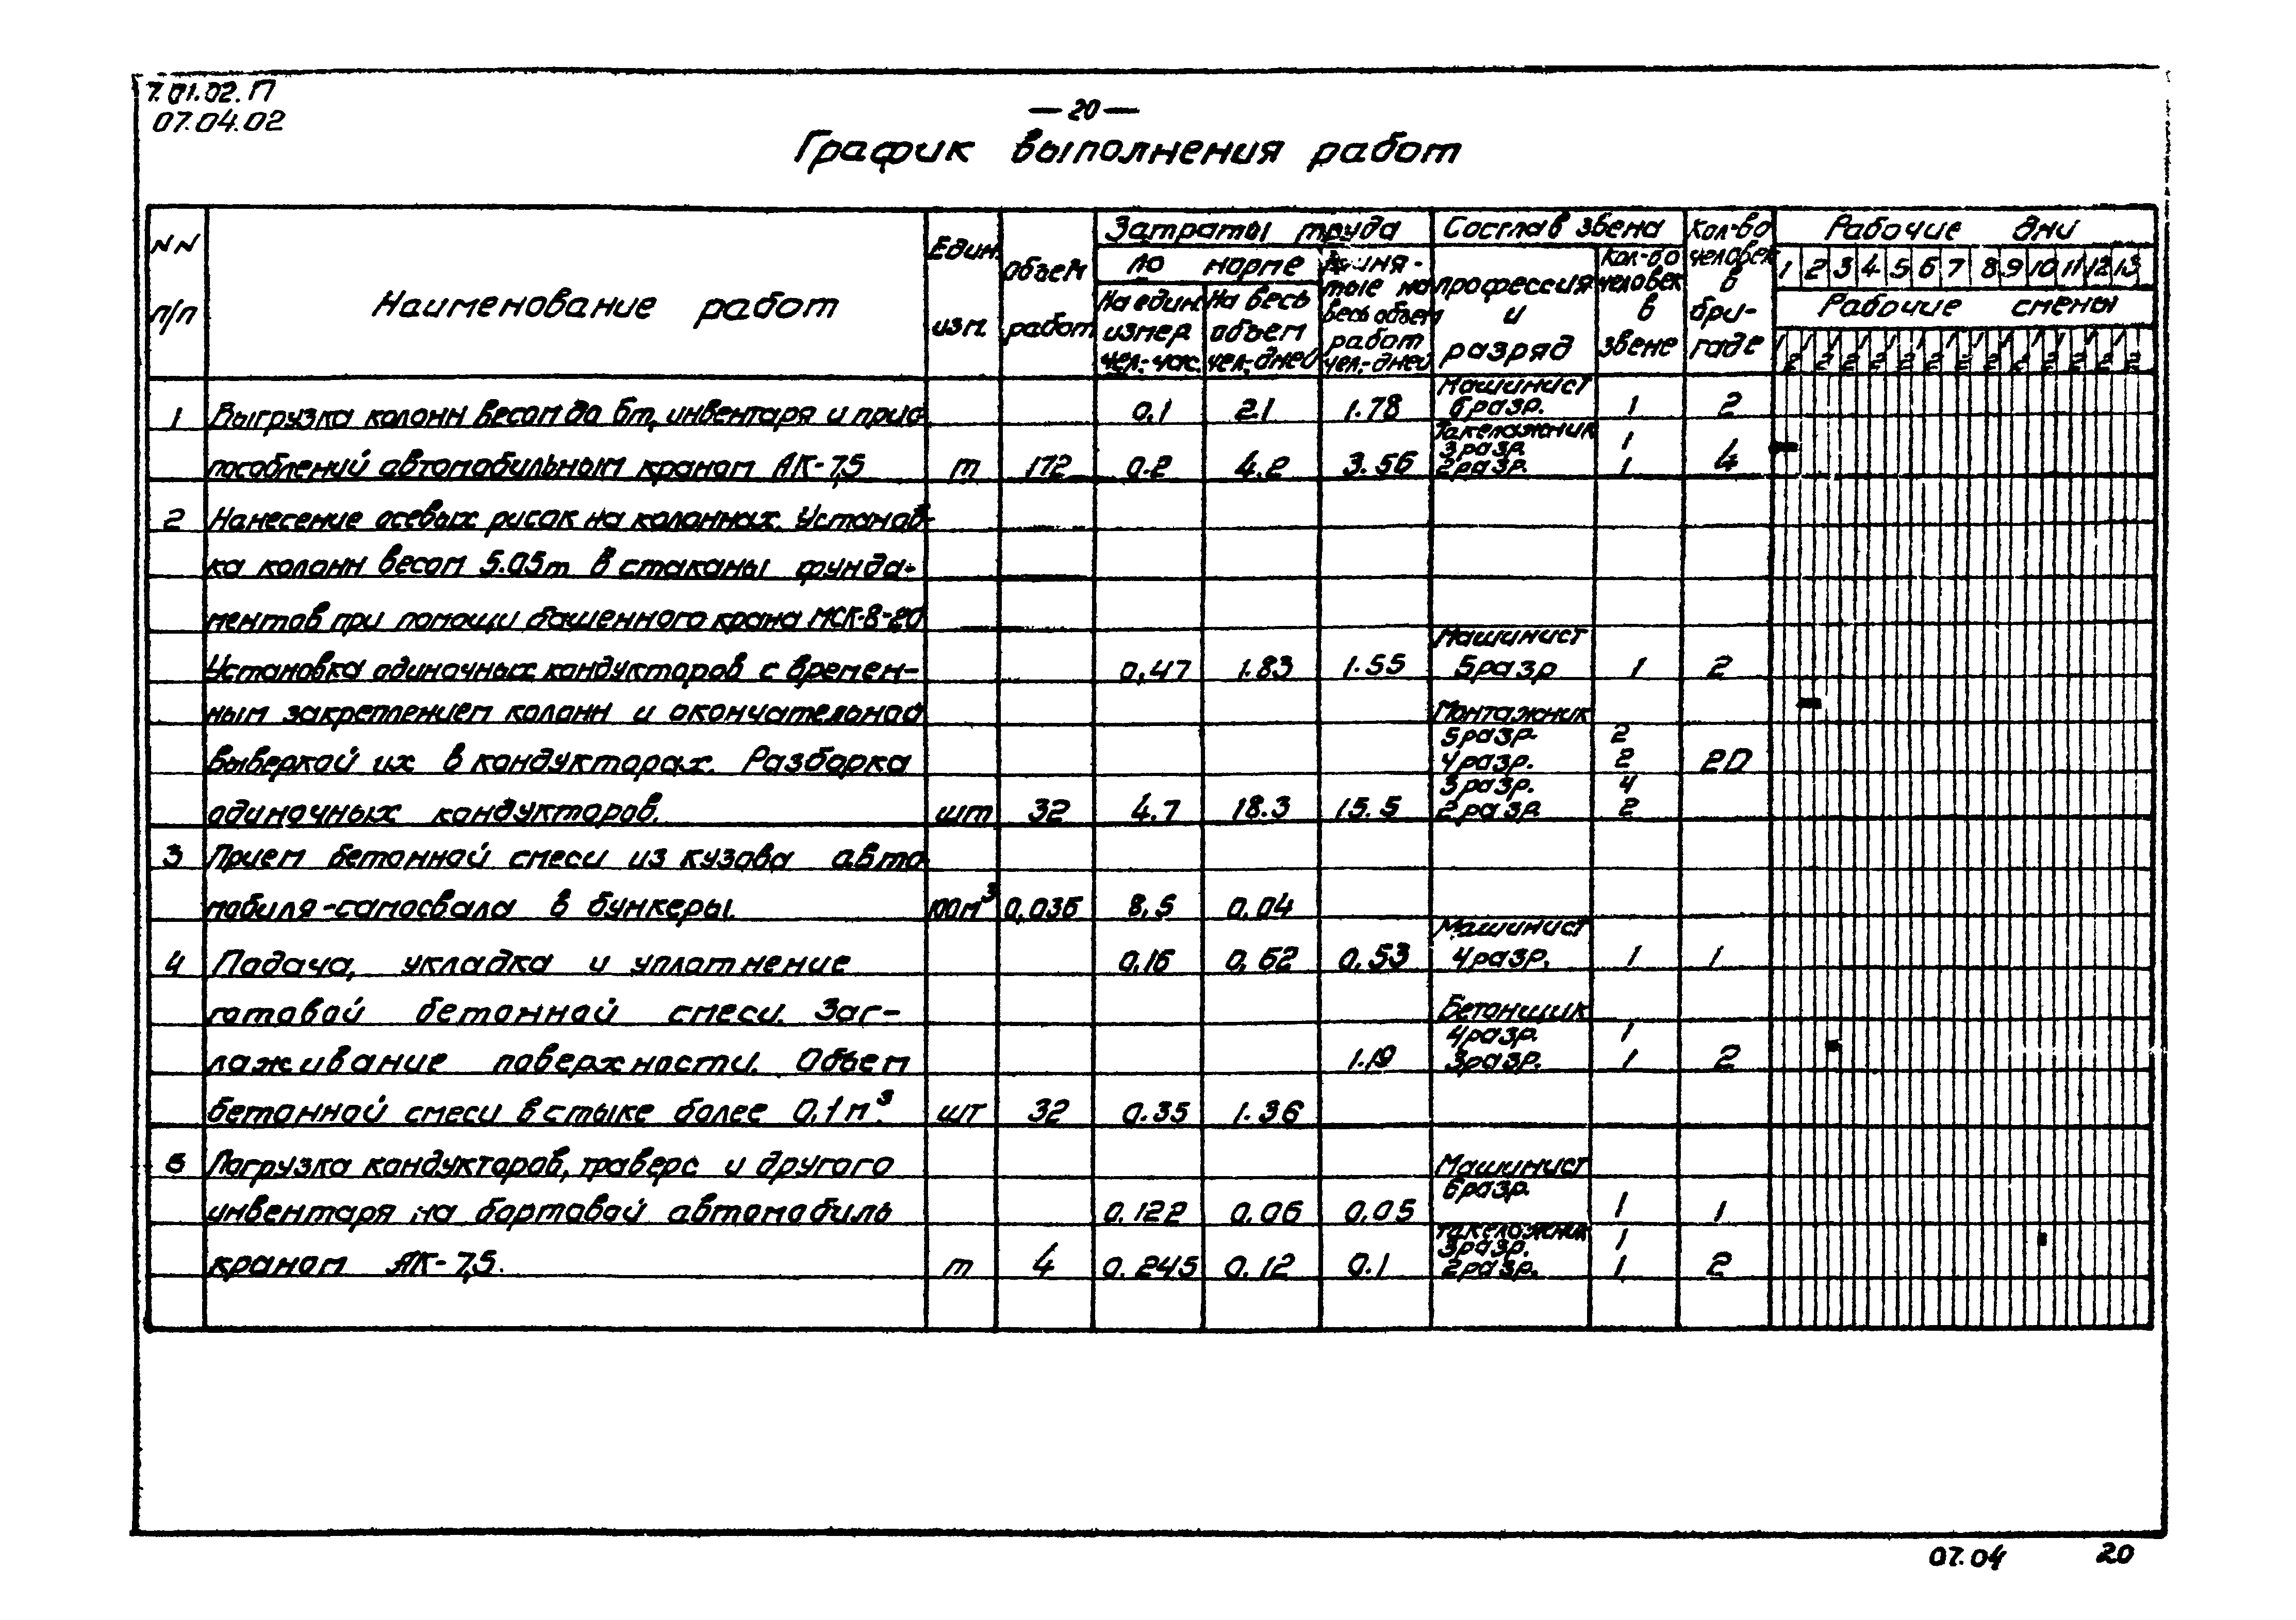 7.01.02.П
07.04.02
— 20 —
График выполнения работ
NN п/п
Наименование работ
Един. изм.
Объем работ
Затраты труда
по норме
На един. измер чел.-час.
На весь объем чел.-дней
Приня-тые на весь объем работ чел.-дней
Состав звена
профессия и разряд
Кол-во человек в звене
Кол-во человек в бри-гаде
Рабочие дни
1 2 3 4 5 6 7 8 9 10 11 12 13
Рабочие смены
1 2 1 2 1 2 1 2 1 2 1 2 1 2 1 2 1 2 1 2 1 2 1 2 1 2
Машинист
1 Выгрузка колонн весом до 6т, инвентаря и прис 0,1 2.1 1.78 6разр. 1 2
Такелажник
3разр. 1
пособлений автомобильным краном АК-7,5 т 172 0.2 4.2 3.56 2разр. 1 4
2 Нанесение осевых рисок на колоннах. Установ-
ка колонн весом 5.05т в стаканы фунда-
ментов при помощи башенного крана МСК-8-20
Машинист
Установка одиночных кондукторов с времен- 0,47 1.83 1.55 5разр 1 2
ным закреплением колонн и окончательной Монтажник
5разр. 2
выверкой их в кондукторах. Разборка 4разр. 2 20
3разр. 4
одиночных кондукторов. шт 32 4.7 18.3 15.5 2разр 2
3 Прием бетонной смеси из кузова авто
мобиля-самосвала в бункеры. 100м³ 0,036 8,5 0.04
Машинист
4 Подача, укладка и уплотнение 0,16 0,62 0,53 4разр. 1 1
готовой бетонной смеси. Заг- Бетонщик
4разр. 1
лаживание поверхности. Объем 1.19 3разр. 1 2
бетонной смеси в стыке более 0,1м³. шт 32 0.35 1.36
5 Погрузка кондукторов, траверс и другого Машинист
6разр.
инвентаря на бортовой автомобиль 0.122 0.06 0.05 1 1
такелажник
3разр. 1
краном АК-7,5. т 4 0.245 0.12 0.1 2разр. 1 2
07.04 20